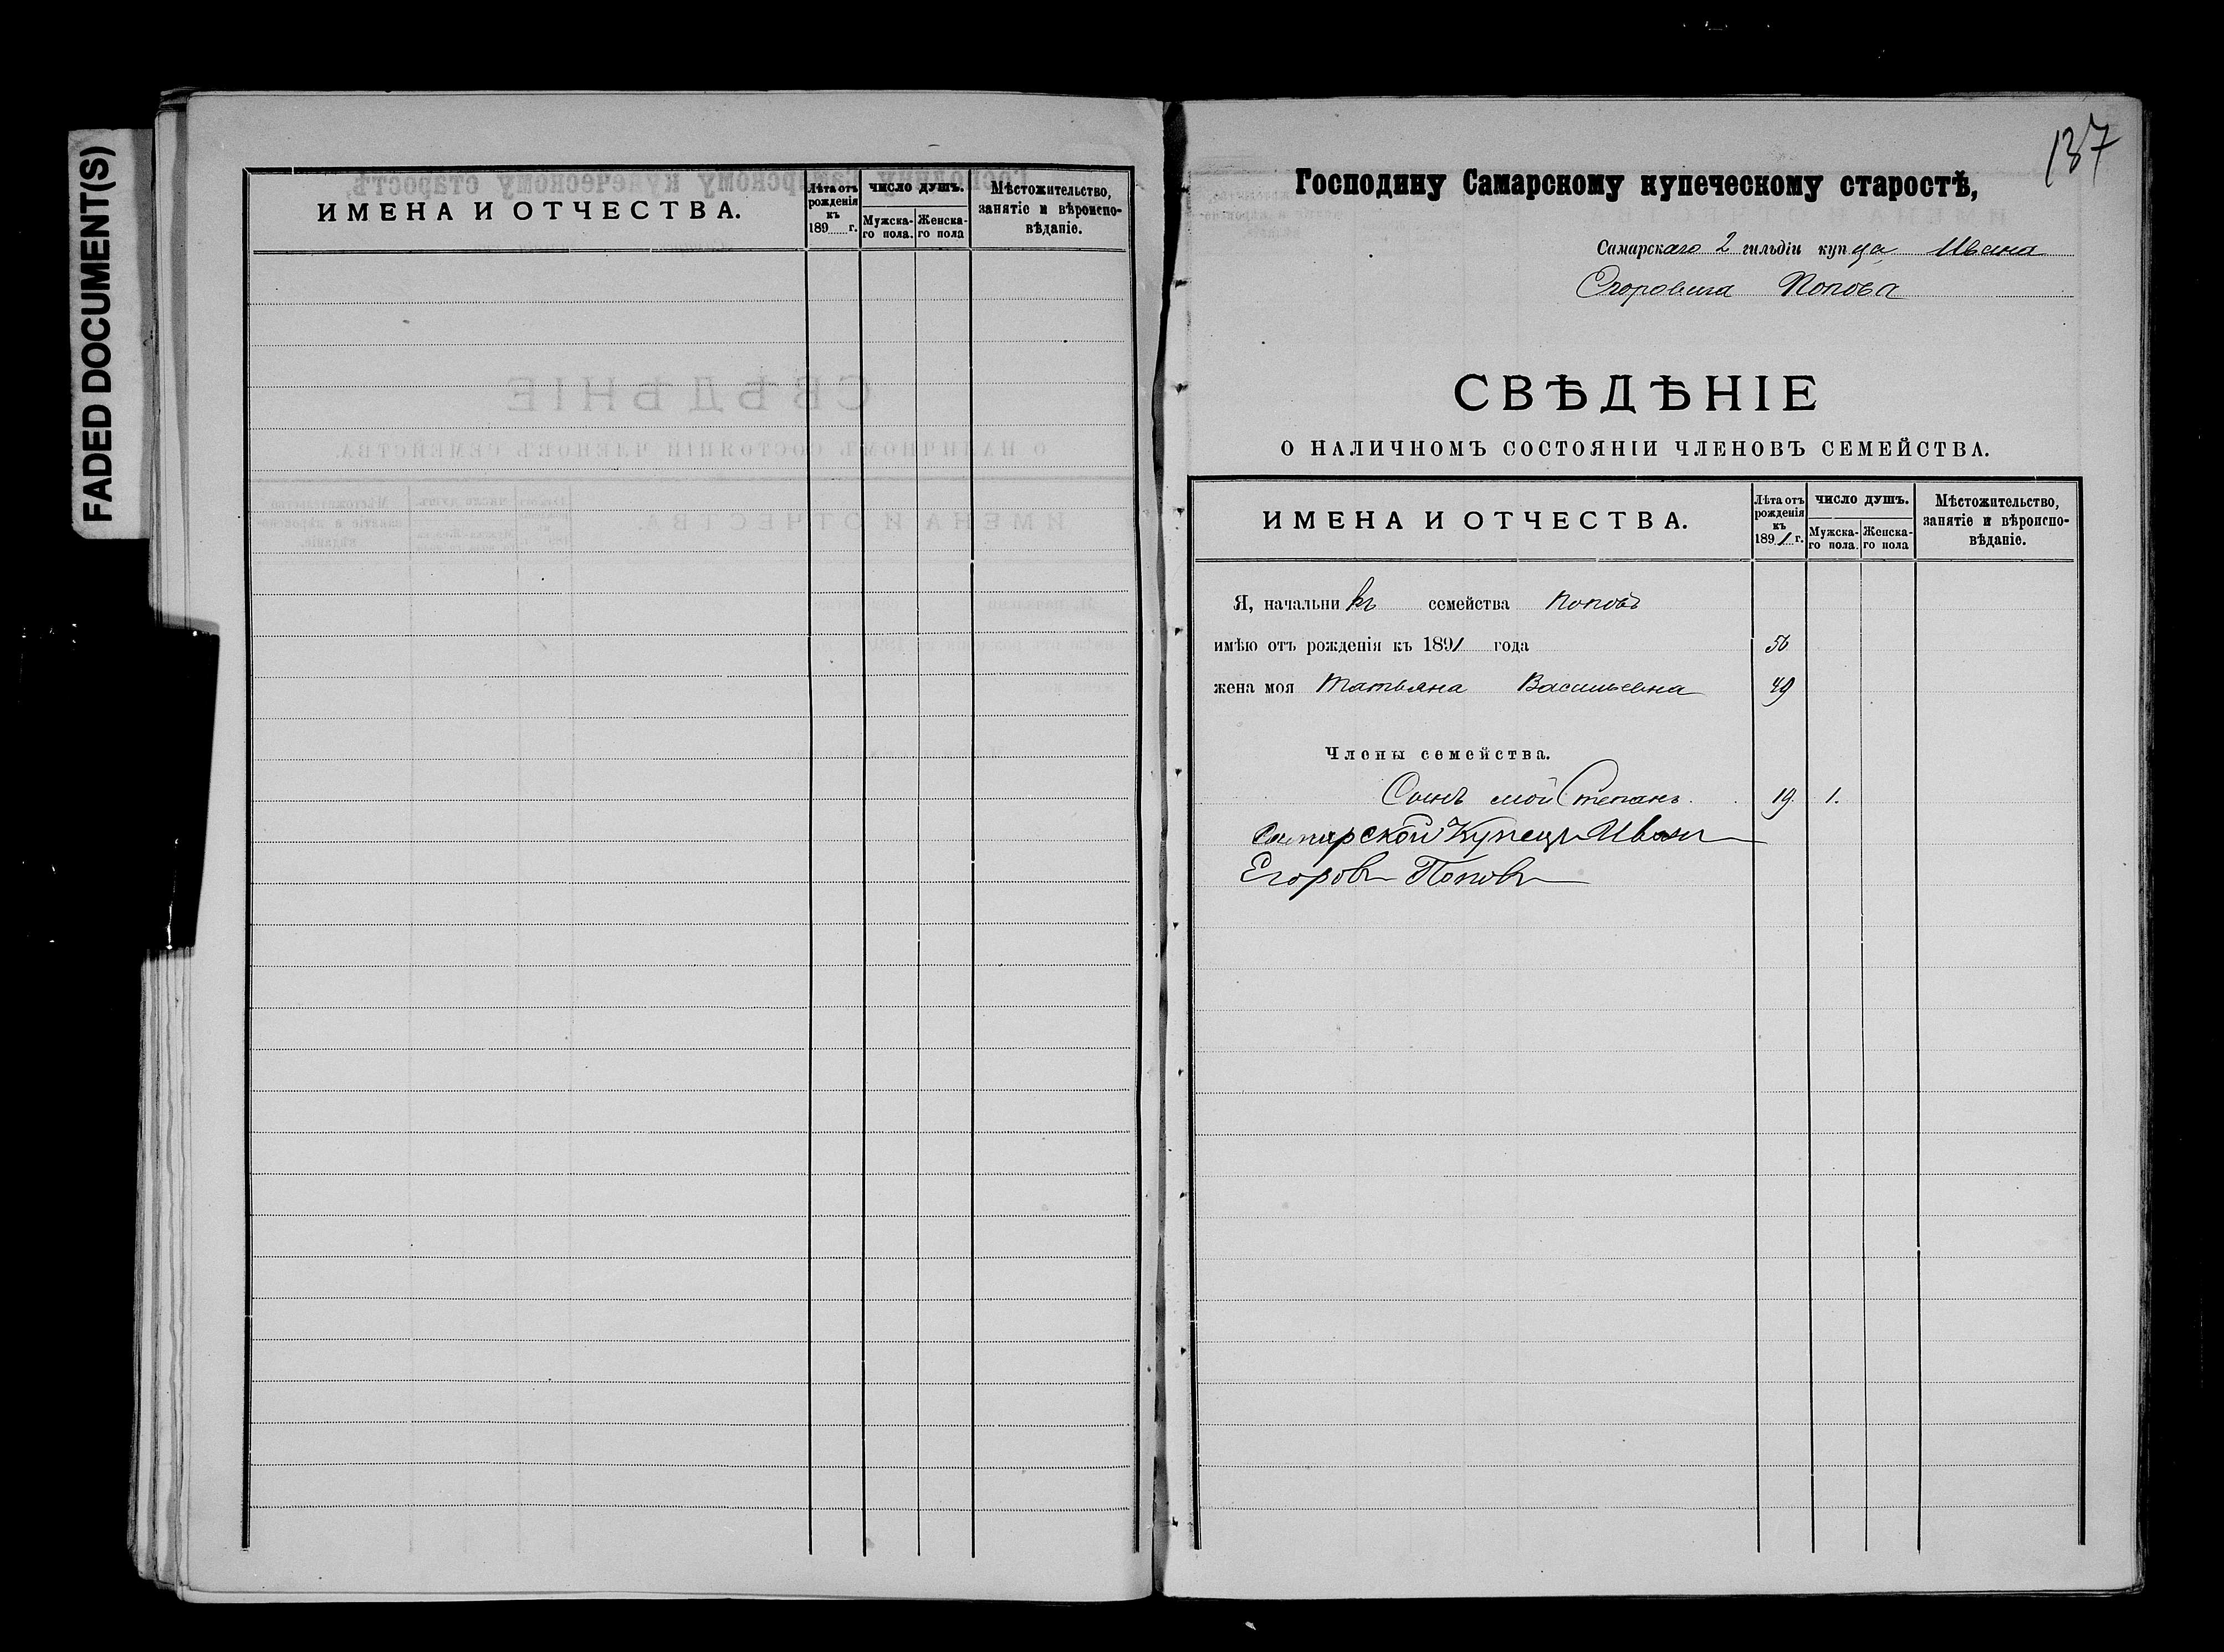 FADED DOCUMENT(S)
ИМЕНА И ОТЧЕСТВА.
Лѣта отъ рожденія къ 189 г.
ЧИСЛО ДУШЪ.
Мужска-го пола.
Женска-го пола
Мѣстожительство, занятіе и вѣроиспо-вѣданіе.
137
Господину Самарскому купеческому старостѣ,
Самарскаго 2 гильдіи купца Ивана
Егоровича Попова
СВѢДѢНІЕ
О НАЛИЧНОМЪ СОСТОЯНІИ ЧЛЕНОВЪ СЕМЕЙСТВА.
ИМЕНА И ОТЧЕСТВА.
Лѣта отъ рожденія къ 1891 г.
ЧИСЛО ДУШЪ.
Мужска-го пола.
Женска-го пола
Мѣстожительство, занятіе и вѣроиспо-вѣданіе.
Я, начальникъ семейства Поповъ
имѣю отъ рожденія къ 1891 года
жена моя Татьяна Васильевна 49
Члены семейства.
Сынъ мой Степанъ. 19 1.
Самарской Купецъ Иванъ
Егоровъ Поповъ